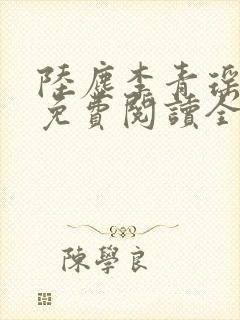 陸塵李青瑶
免費閱讀全
陳學良